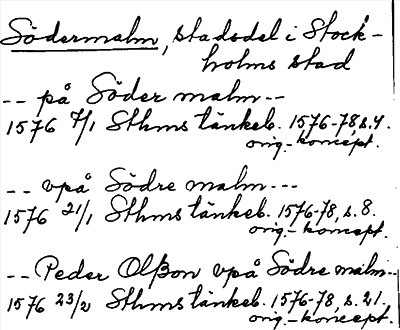 Södermalm, stadsdel i Stock-
holms stad
-- på Söder malm --
1576 7/1 Sthms tänkeb. 1576-78, s. 4.
orig.-koncept.
-- vpå Södre malm ---
1576 21/1 Sthms tänkeb. 1576-78, s. 8.
orig.-koncept.
-- Peder Olßon vpå Södre malm --
1576 23/2 Sthms tänkeb. 1576-78, s. 21.
orig.-koncept.